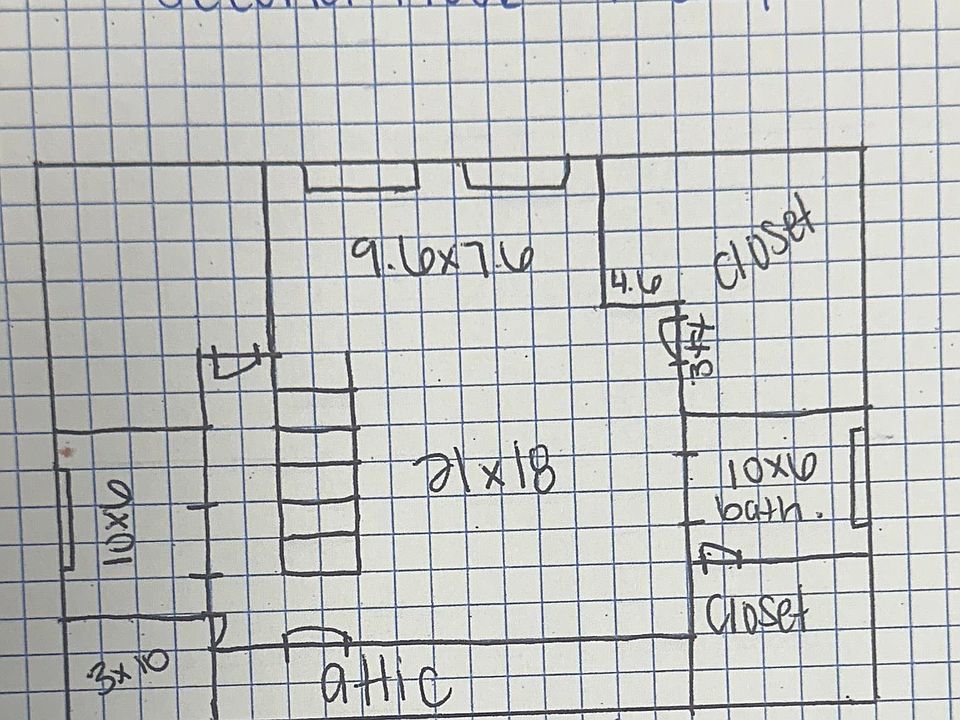 9.6x7.6
closet
4.6
3ft
21x18
10x6
10x6
bath.
closet
3x10
attic